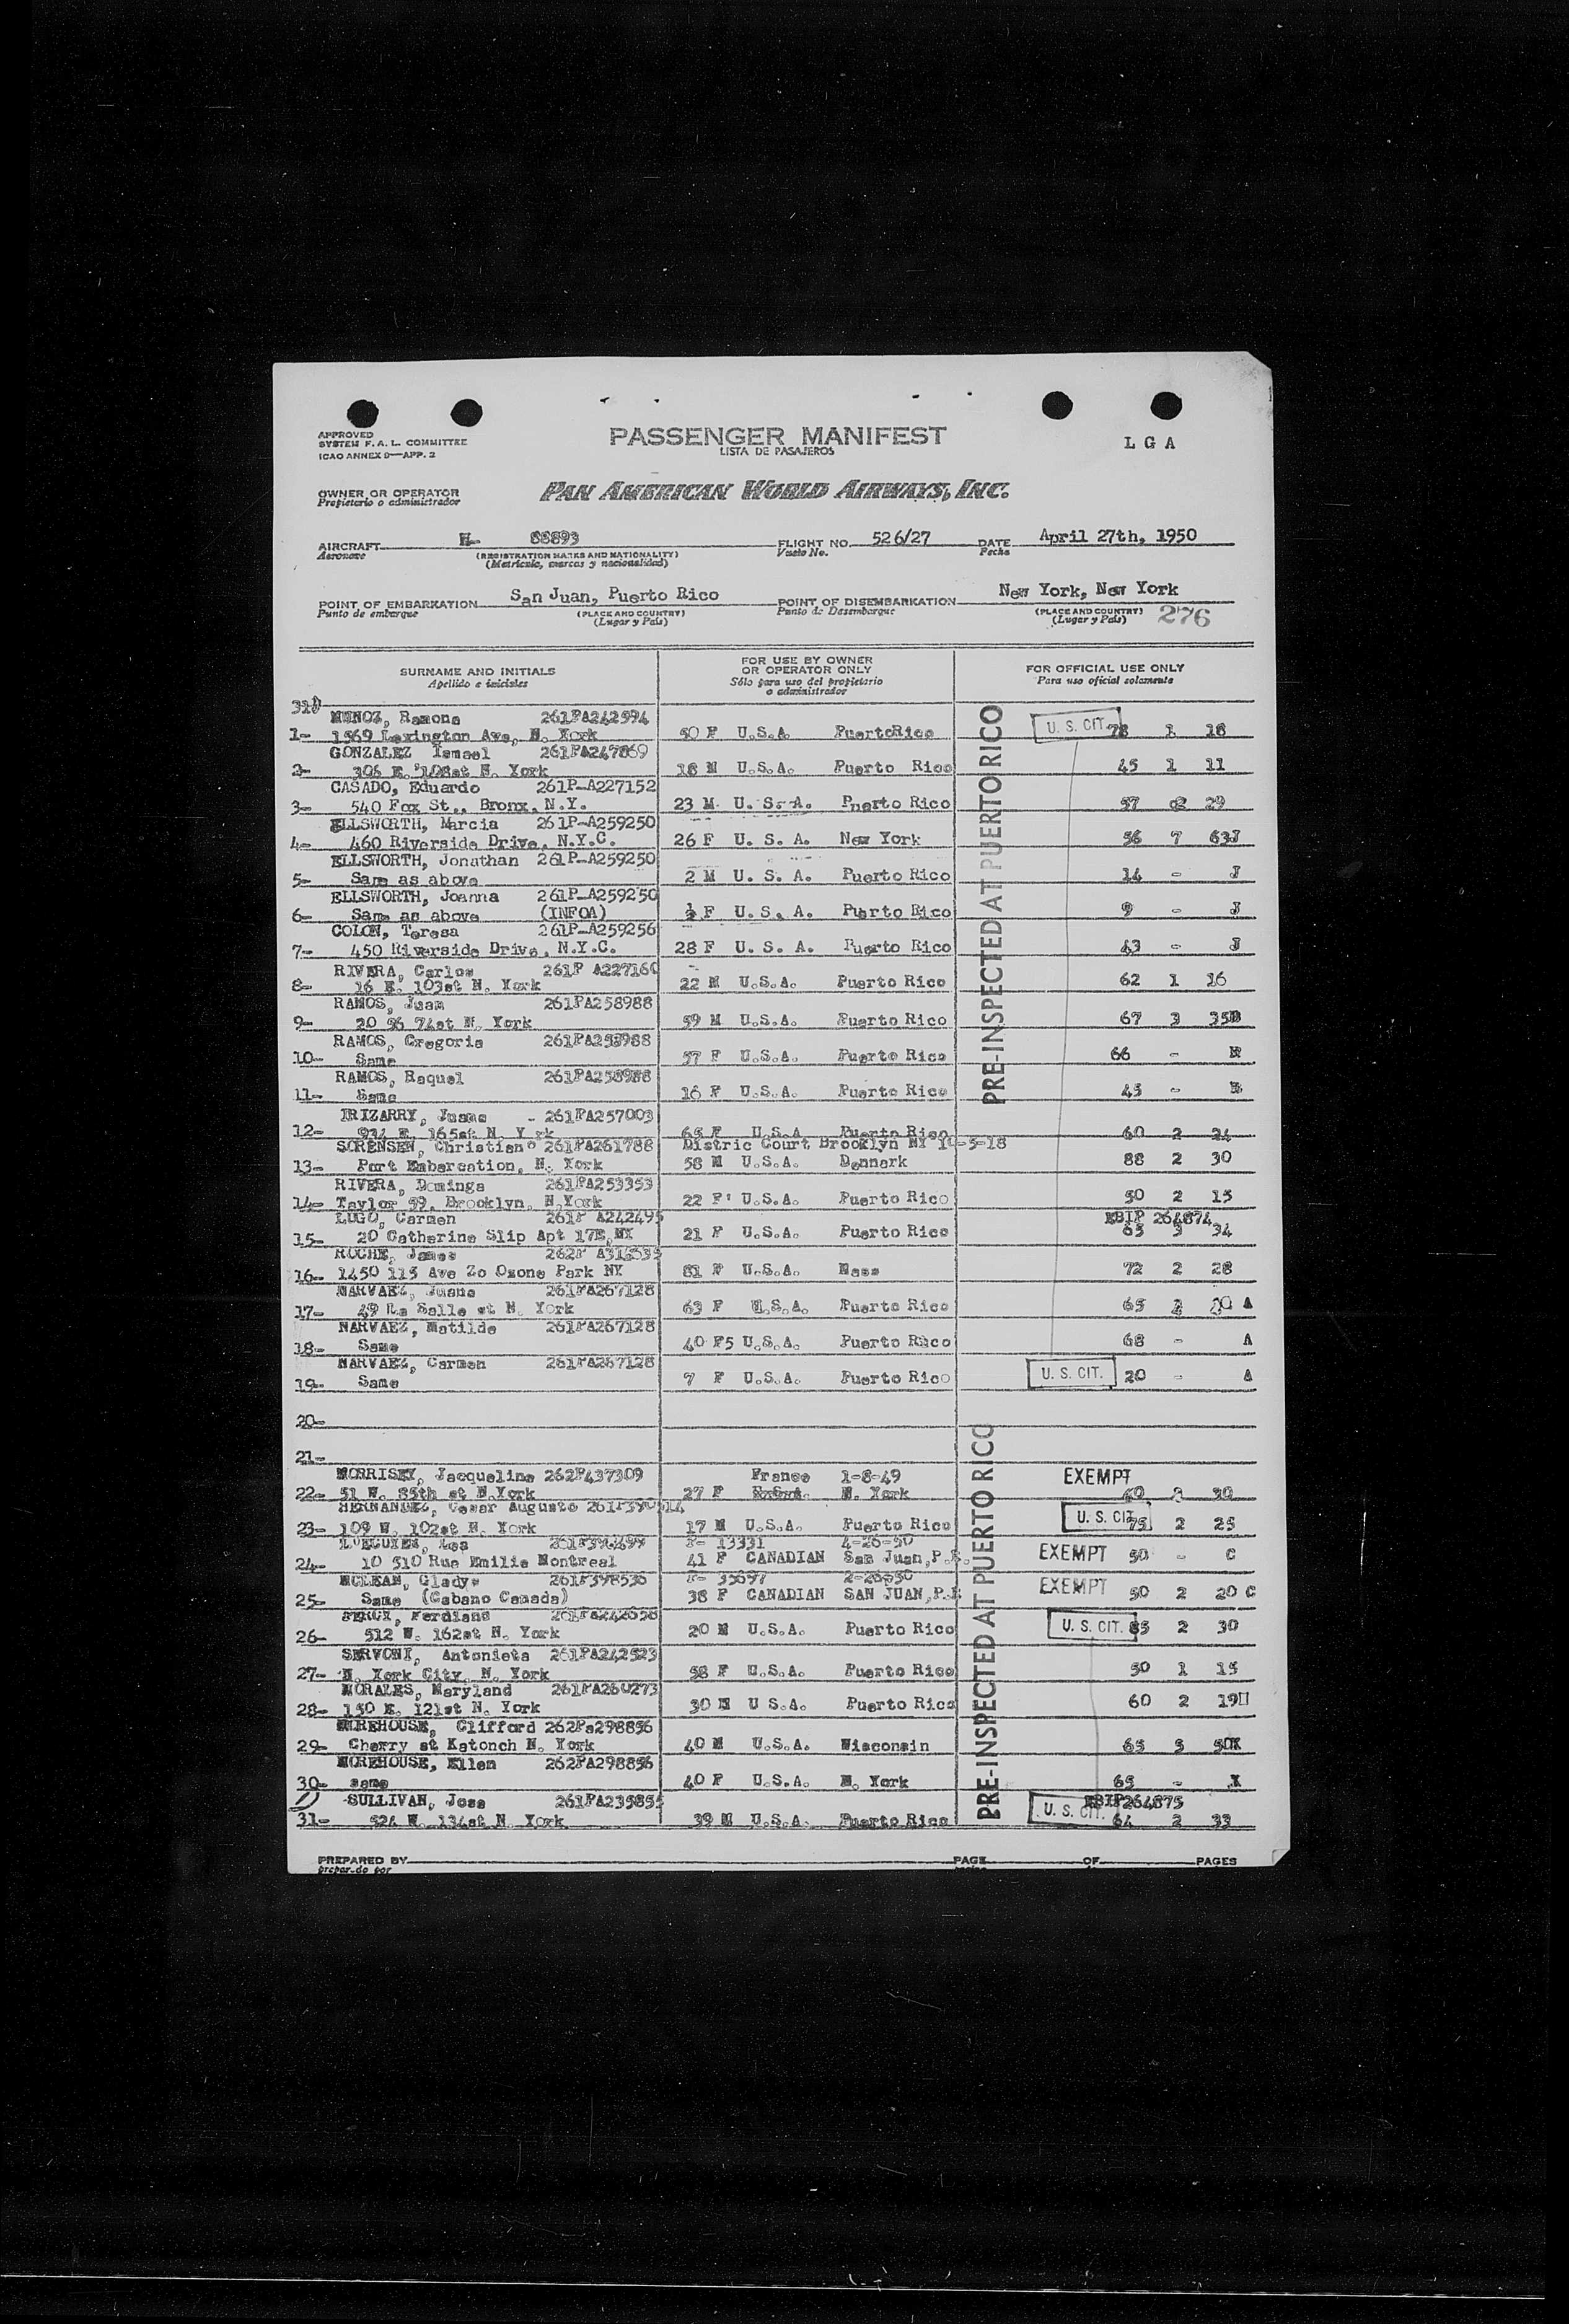 APPROVED
SYSTEM F. A. L. COMMITTEE
ICAO ANNEX 9—APP. 2
PASSENGER MANIFEST
LISTA DE PASAJEROS
L G A
OWNER OR OPERATOR
Propietario o administrador
PAN AMERICAN WORLD AIRWAYS, INC.
AIRCRAFT 88893 FLIGHT NO. 526/27 DATE April 27th, 1950
Aeronave (REGISTRATION MARKS AND NATIONALITY) Vuelo No. Fecha
(Matrícula, marcas y nacionalidad)
POINT OF EMBARKATION San Juan, Puerto Rico POINT OF DISEMBARKATION New York, New York
Punto de embarque (PLACE AND COUNTRY) Punto de Desembarque (PLACE AND COUNTRY) 276
(Lugar y País) (Lugar y País)
SURNAME AND INITIALS FOR USE BY OWNER OR OPERATOR ONLY FOR OFFICIAL USE ONLY
Apellido e iniciales Sólo para uso del propietario o administrador Para uso oficial solamente
PRE-INSPECTED AT PUERTO RICO
MUNOZ, Ramona 261PA242994 U. S. CIT.
1- 1569 Lexington Ave, N. York 50 F U.S.A. PuertoRico 78 1 18
GONZALEZ Ismael 261PA247869
2- 306 E. 108st N. York 18 M U.S.A. Puerto Rico 45 1 11
CASADO, Eduardo 261P-A227152
3- 540 Fox St., Bronx, N.Y. 23 M U. S. A. Puerto Rico 57 2 29
ELLSWORTH, Marcia 261P-A259250
4- 460 Riverside Drive, N.Y.C. 26 F U. S. A. New York 56 7 63J
ELLSWORTH, Jonathan 261P-A259250
5- Same as above 2 M U. S. A. Puerto Rico 14 - J
ELLSWORTH, Joanna 261P-A259250
6- Same as above (INFOA) ½ F U. S. A. Puerto Rico 9 - J
COLON, Teresa 261P-A259256
7- 450 Riverside Drive, N.Y.C. 28 F U. S. A. Puerto Rico 43 - J
RIVERA, Carlos 261P A227160
8- 16 E. 103st N. York 22 M U.S.A. Puerto Rico 62 1 16
RAMOS, Juam 261PA258988
9- 20 96 74st N. York 59 M U.S.A. Puerto Rico 67 3 35B
RAMOS, Gregoria 261PA258988
10- Same 57 F U.S.A. Puerto Rico 66 -
RAMOS, Raquel 261PA258988
11- Same 16 F U.S.A. Puerto Rico 45 -
IRIZARRY, Juana - 261PA257003
12- 934 E. 165st N. Y rk 65 F U.S.A Puerto Rico 60 2 24
SORENSEN, Christian 261PA261788 Distric Court Brooklyn NY 10-5-18
13- Port Embarcation, N. York 58 M U.S.A. Denmark 88 2 30
RIVERA, Dominga 261PA253353
14- Taylor 99, Brooklyn, N.York 22 F U.S.A. Puerto Rico 50 2 15
LUGO, Carmen 261P A242495 EBIP 264874
15- 20 Catherine Slip Apt 17E,NY 21 F U.S.A. Puerto Rico 63 3 34
ROCHE, James
16- 1450 115 Ave Zo Ozone Park NY 81 U.S.A. Mass 72 2 28
NARVAEZ, Juana 261PA267128
17- 49 La Salle st N. York 63 F U.S.A. Puerto Rico 65 2 20 A
NARVAEZ, Matilde 261PA267128
18- Same 40 F5 U.S.A. Puerto Rico 68 - A
NARVAEZ, Carmen 261PA267128
19- Same 7 F U.S.A. Puerto Rico U. S. CIT. 20 - A
20-
21-
PRE-INSPECTED AT PUERTO RICO
MORRISEY, Jacqueline 262P437309 France 1-8-49 EXEMPT
22- 51 W. 85th st N.York 27 F N. York
HERNANDEZ, Cesar Augusto U. S. CIT.
23- 109 W. 102st N. York 17 M U.S.A. Puerto Rico 75 2 25
P- 13331 4-26-50
24- 10 510 Rue Emilie Montreal 41 F CANADIAN San Juan,P.R. EXEMPT 50 - C
MCLEAN, Gladys 261P398536 P- 35697
25- Same (Cabano Canada) 38 F CANADIAN SAN JUAN,P.R EXEMPT 50 2 20 C
26- 512 W. 162st N. York 20 M U.S.A. Puerto Rico U. S. CIT. 85 2 30
SERVONI, Antonieta 261PA242523
27- N. York City, N. York 58 F U.S.A. Puerto Rico 50 1 15
MORALES, Maryland 261PA260273
28- 150 E. 121st N. York 30 U S.A. Puerto Rico 60 2 19
MOREHOUSE, Clifford 262Pa298856
29- Cherry st Katonch N. York 40 M U.S.A. Wisconsin 65 5 50X
MOREHOUSE, Ellen 262PA298856
30- same 40 F U.S.A. N. York 65 - X
SULLIVAN, Jose 261PA235855 EBIP264875
31- 524 W. 134st N. York 39 M U.S.A. Puerto Rico U. S. CIT. 64 2 33
PREPARED BY PAGE OF PAGES